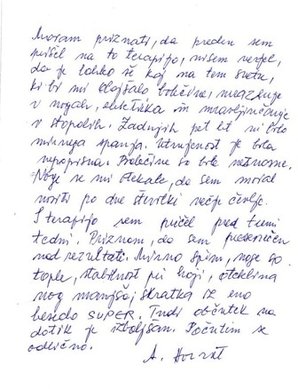 Moram priznati, da preden sem
prišel na to terapijo, nisem verjel,
da je lahko še kaj na tem svetu,
ki bi mi olajšalo bolečine, mraženje
v nogah, elektrika in mravljinčenje
v stopalih. Zadnjih pet let ni bilo
mirnega spanja. Utrujenost je bila
nepopisna. Bolečine so bile neznosne.
Noge so mi otekale, da sem moral
nositi po dve številki večje čevlje.
S terapijo sem pričel pred tremi
tedni. Priznam, da sem presenečen
nad rezultati. Mirno spim, noge so
tople, stabilnost pri hoji, oteklina
nog manjša, skratka še eno
besedo SUPER. Tudi občutek na
dotik je izboljšan. Počutim se
odlično.
A. Horvat